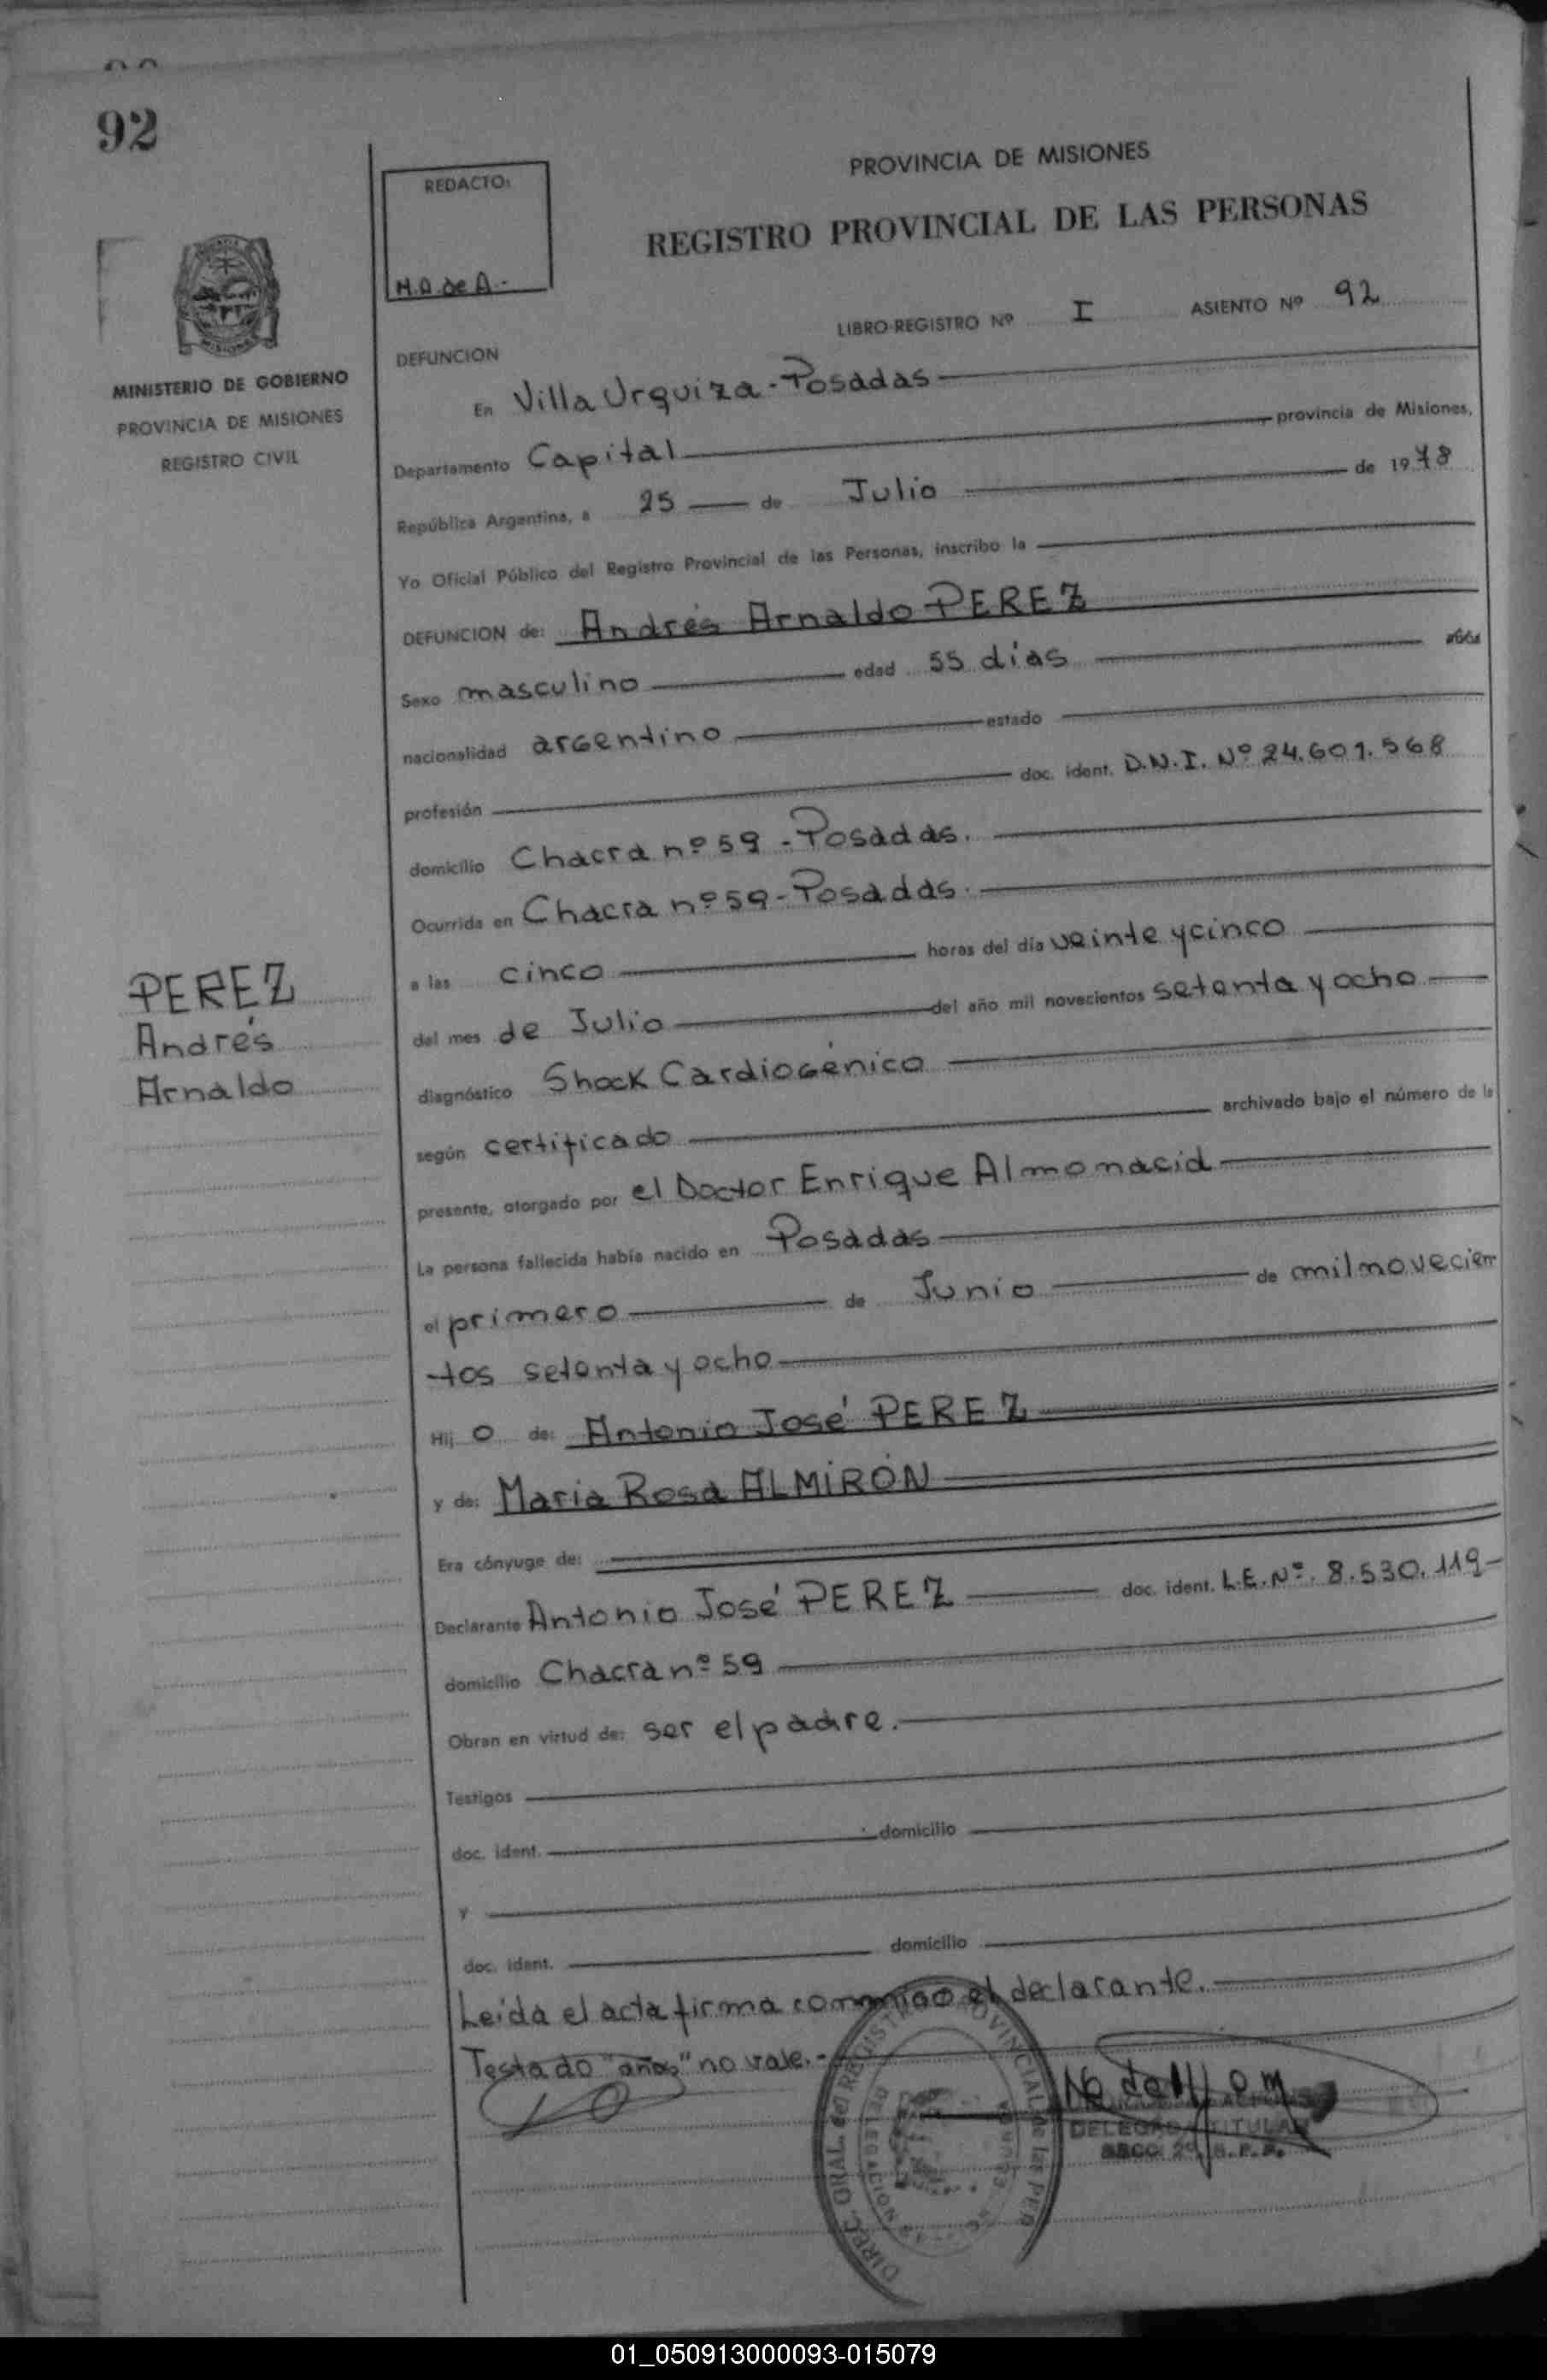 92
PROVINCIA DE MISIONES
REGISTRO PROVINCIAL DE LAS PERSONAS
REDACTO:
M.A. de A.-
LIBRO-REGISTRO Nº I ASIENTO Nº 92
MINISTERIO DE GOBIERNO
PROVINCIA DE MISIONES
REGISTRO CIVIL
DEFUNCION
En Villa Urquiza - Posadas
Departamento Capital provincia de Misiones,
República Argentina, a 25 de Julio de 1978
Yo Oficial Público del Registro Provincial de las Personas, inscribo la
DEFUNCION de: Andrés Arnaldo PEREZ
Sexo masculino edad 55 días
nacionalidad argentino estado
profesión doc. ident. D.N.I. Nº 24.601.568
domicilio Chacra nº 59 - Posadas.
Ocurrida en Chacra nº 59 - Posadas.
a las cinco horas del día veinte y cinco
del mes de Julio del año mil novecientos setenta y ocho
diagnóstico Shock Cardiogénico
según certificado archivado bajo el número de la
presente, otorgado por el Doctor Enrique Almonacid
La persona fallecida había nacido en Posadas
el primero de Junio de mil novecien
tos setenta y ocho
Hij o de: Antonio José PEREZ
y de: Maria Rosa ALMIRÓN
Era cónyuge de:
Declarante Antonio José PEREZ doc. ident. L.E. Nº. 8.530.119-
domicilio Chacra nº 59
Obran en virtud de: ser el padre.
Testigos
doc. ident. domicilio
y
doc. ident. domicilio
Leída el acta firma conmigo el declarante.
Testado "años" no vale.-
PEREZ
Andrés
Arnaldo
DELEGADA TITULAR
01_050913000093-015079